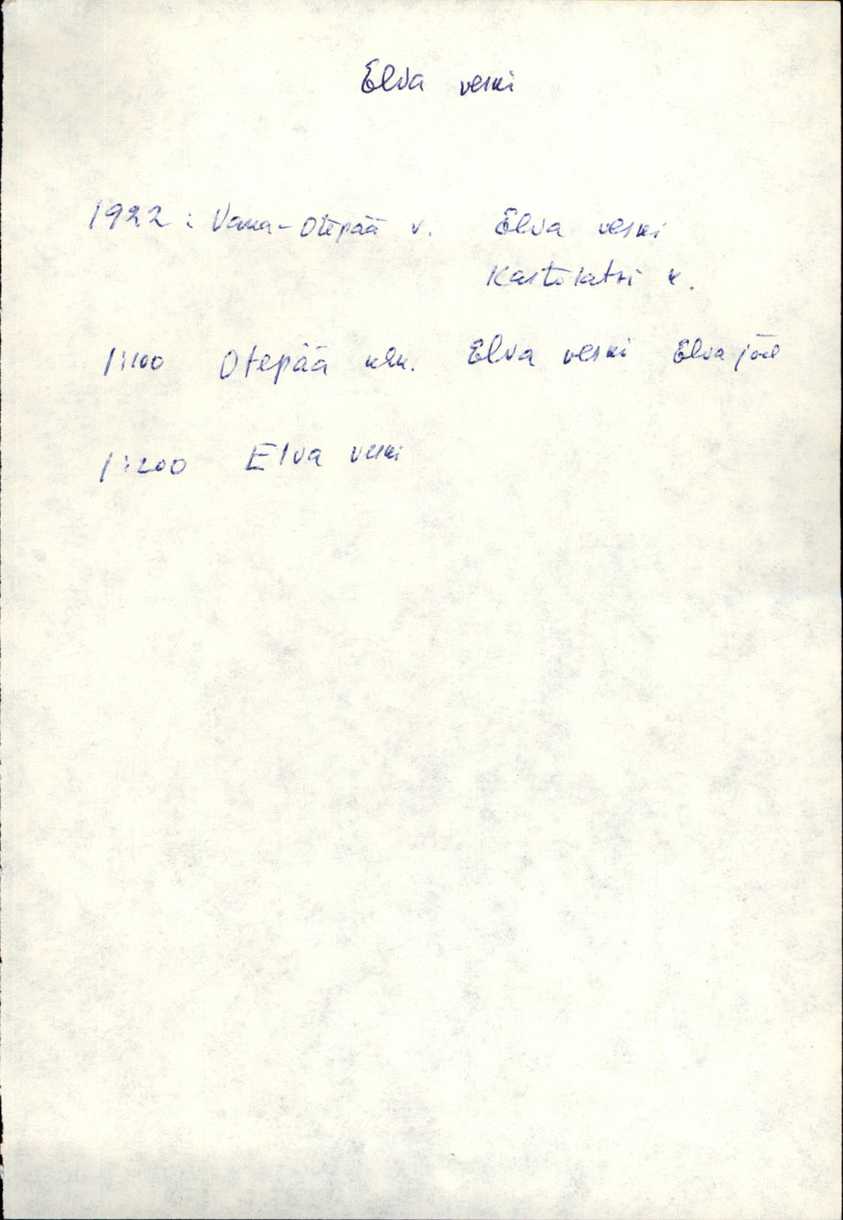 Elva veski
1922: Vana-Otepää v. Elva veski
Kastolatsi k.
1:100 Otepää khk. Elva veski Elva jõel
1:200 Elva veski